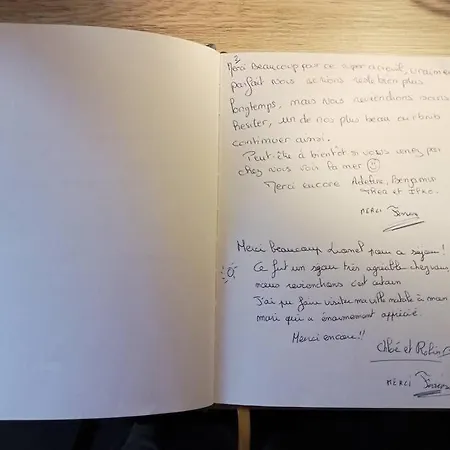 Merci Beaucoup pour ce super acceuil, vraiment
parfait nous serions resté bien plus
longtemps, mais nous reviendrons sans
hésiter, un de nos plus beau airbnb
continuer ainsi.
Peut-être à bientôt si vous venez par
chez nous voir la mer ☺
Merci encore Benjamin
et
MERCI
Merci beaucoup Lionel pour ce séjour!
Ce fut un séjour très agréable chez vous,
nous reviendrons c'est certain
J'ai pu faire visiter ma ville natale à mon
mari qui a énormément apprécié.
Merci encore!!
Chloé et Robin
MERCI